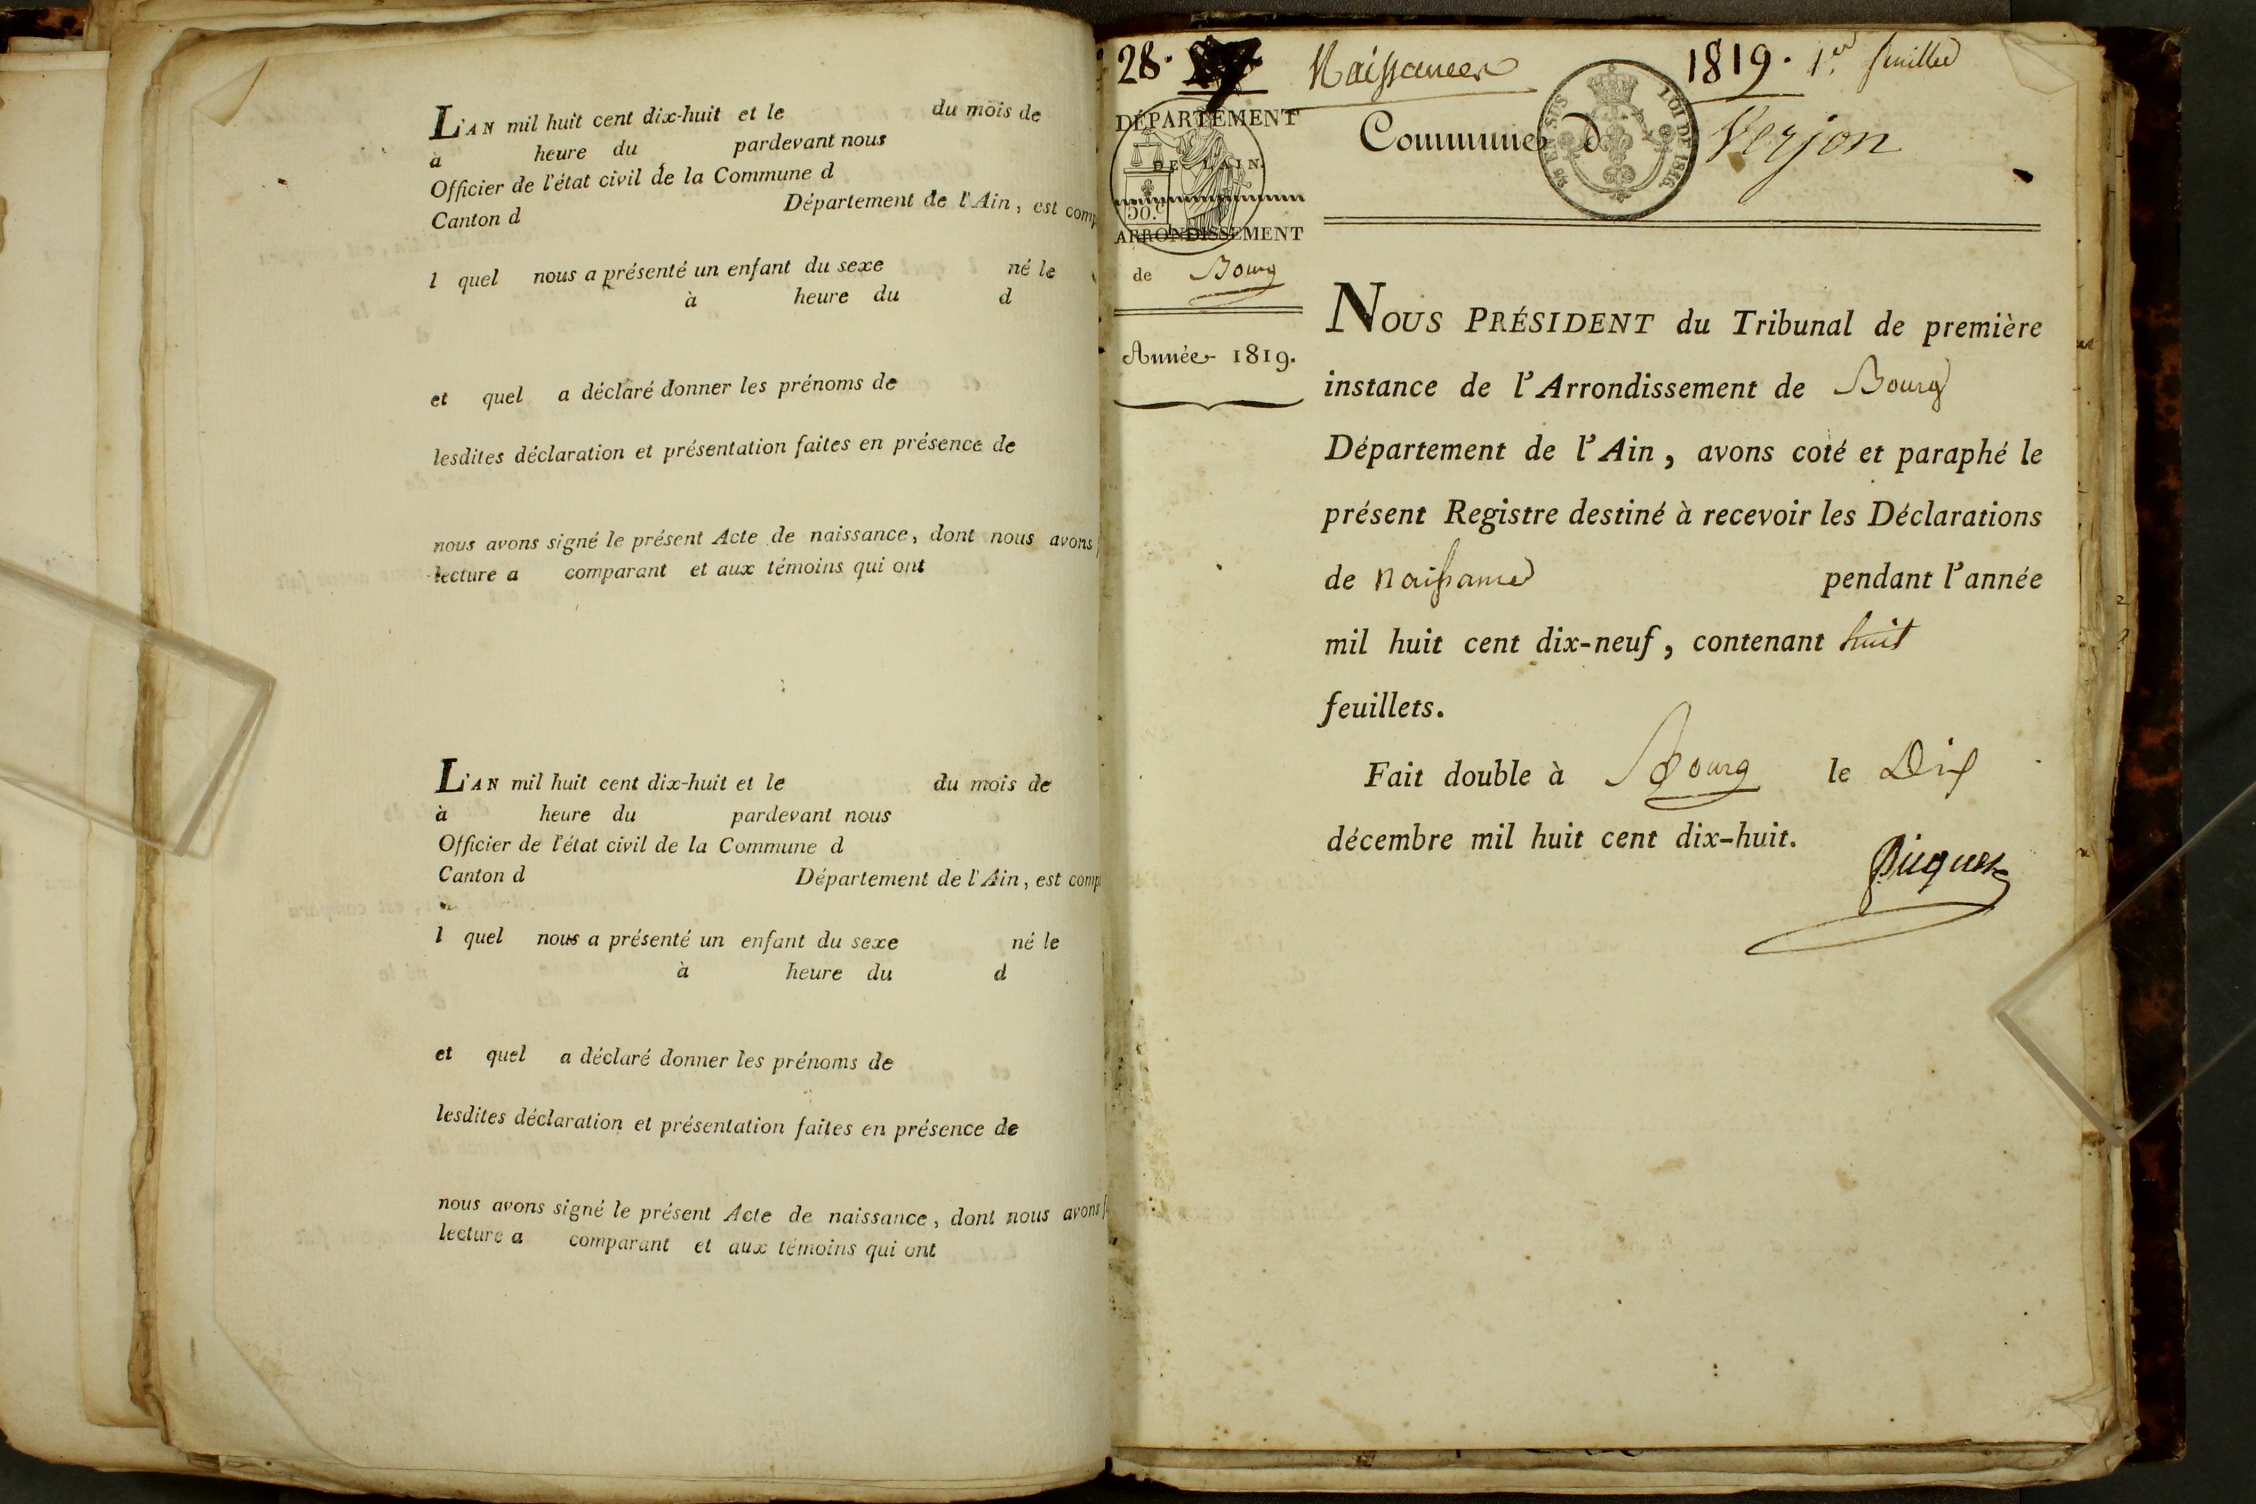 L'AN mil huit cent dix-huit et le du mois de
à heure du pardevant nous
Officier de l'état civil de la Commune d
Canton d Département de l'Ain, est comp
l quel nous a présenté un enfant du sexe né le
à heure du d
et quel a déclaré donner les prénoms de
lesdites déclaration et présentation faites en présence de
nous avons signé le présent Acte de naissance, dont nous avons
lecture a comparant et aux témoins qui ont
L'AN mil huit cent dix-huit et le du mois de
à heure du pardevant nous
Officier de l'état civil de la Commune d
Canton d Département de l'Ain, est comp
l quel nous a présenté un enfant du sexe né le
à heure du d
et quel a déclaré donner les prénoms de
lesdites déclaration et présentation faites en présence de
nous avons signé le présent Acte de naissance, dont nous avons
lecture a comparant et aux témoins qui ont
28. Naissances 1819. 1er feuillet
DÉPARTEMENT
DE L'AIN.
50.c
ARRONDISSEMENT
de Bourg
Année 1819.
LOI DE 1816.
EN SUS
Commune d Verjon
NOUS PRÉSIDENT du Tribunal de première
instance de l'Arrondissement de Bourg
Département de l'Ain, avons coté et paraphé le
présent Registre destiné à recevoir les Déclarations
de naissance pendant l'année
mil huit cent dix-neuf, contenant huit
feuillets.
Fait double à Bourg le Dix
décembre mil huit cent dix-huit.